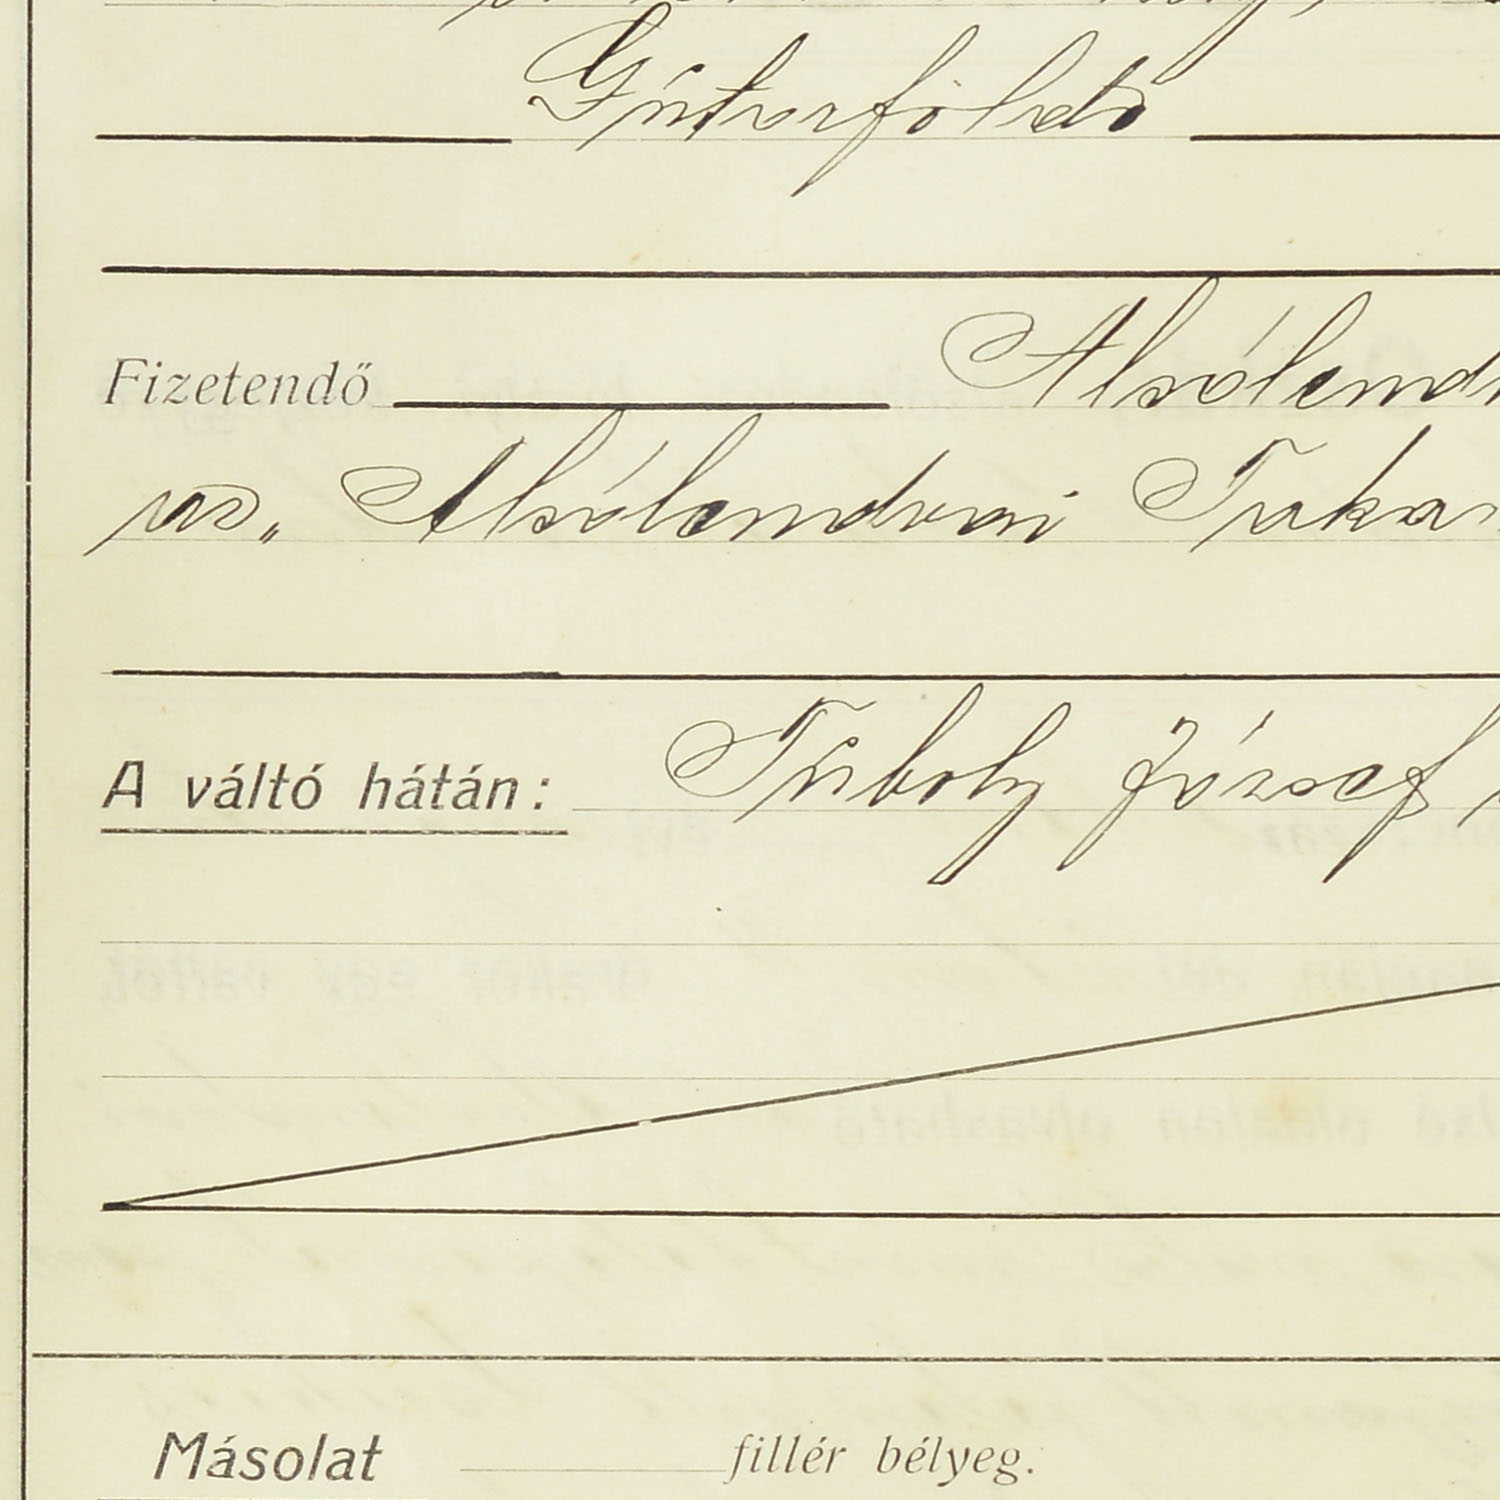 Gutorfölde
Fizetendő Alsólend
az „Alsólendvai Taka
A váltó hátán: Tuboly József
Másolat fillér bélyeg.